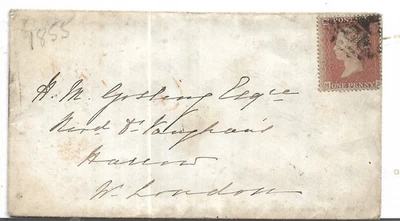 1855
POSTAGE
ONE PENNY
H. M. Gosling Esqre
Revd Dr Vaughan's
Harrow
W. London